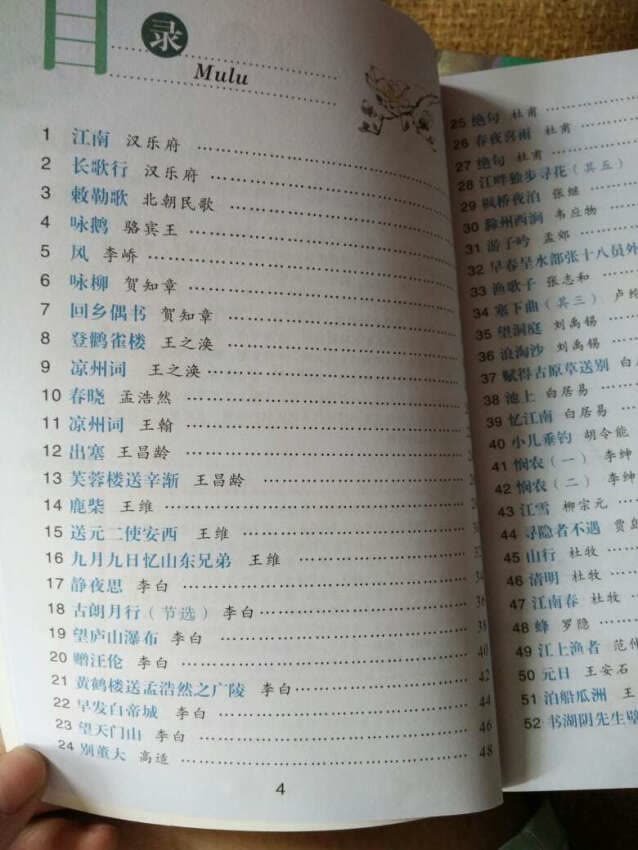 目录
Mulu
1 江南 汉乐府
2 长歌行 汉乐府
3 敕勒歌 北朝民歌
4 咏鹅 骆宾王
5 风 李峤
6 咏柳 贺知章
7 回乡偶书 贺知章
8 登鹳雀楼 王之涣
9 凉州词 王之涣
10 春晓 孟浩然
11 凉州词 王翰
12 出塞 王昌龄
13 芙蓉楼送辛渐 王昌龄
14 鹿柴 王维
15 送元二使安西 王维 30
16 九月九日忆山东兄弟 王维 32
17 静夜思 李白 34
18 古朗月行（节选） 李白 36
19 望庐山瀑布 李白 38
20 赠汪伦 李白 40
21 黄鹤楼送孟浩然之广陵 李白 42
22 早发白帝城 李白 44
23 望天门山 李白 46
24 别董大 高适 48
4
25 绝句 杜甫
26 春夜喜雨 杜甫
27 绝句 杜甫
28 江畔独步寻花（其五）
29 枫桥夜泊 张继
30 滁州西涧 韦应物
31 游子吟 孟郊
32 早春呈水部张十八员外
33 渔歌子 张志和
34 塞下曲（其三） 卢纶
35 望洞庭 刘禹锡
36 浪淘沙 刘禹锡
37 赋得古原草送别 白
38 池上 白居易
39 忆江南 白居易
40 小儿垂钓 胡令能
41 悯农（一） 李绅
42 悯农（二） 李绅
43 江雪 柳宗元
44 寻隐者不遇 贾岛
45 山行 杜牧
46 清明 杜牧
47 江南春 杜牧
48 蜂 罗隐
49 江上渔者 范仲
50 元日 王安石
51 泊船瓜洲 王
52 书湖阴先生壁